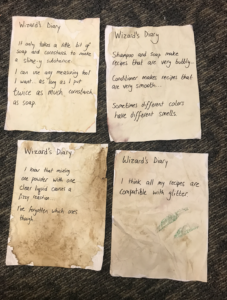 Wizard's Diary
It only takes a little bit of
soap and cornstarch to make
a slime-y substance.
I can use any measuring that
I want as long as I put
twice as much cornstarch
as soap.
Wizard's Diary
Shampoo and soap make
recipes that are very bubbly.
Conditioner makes recipes that
are very smooth.
Sometimes different colors
have different smells.
Wizard's Diary
I know that mixing
one powder with one
clear liquid causes a
fizzy reaction.
I've forgotten which ones
though.
Wizard's Diary
I think all my recipes are
compatible with glitter